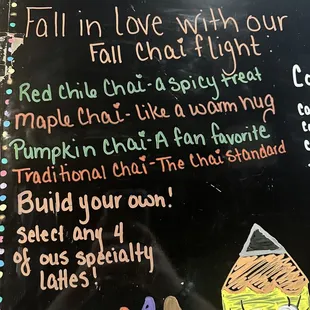 Fall in love with our
Fall Chai flight.
Red Chile Chai-a spicy treat
Maple Chai-like a warm hug
Pumpkin Chai-A fan favorite
Traditional Chai-The Chai Standard
Build your own!
Select any 4
of ous specialty
lattes!